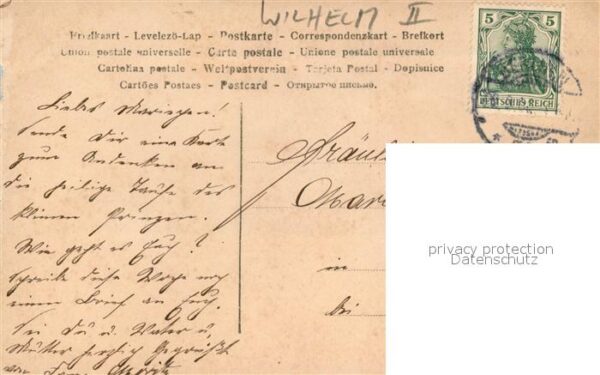 WILHELM II
Brefkaart - Levelezö-Lap - Postkarte - Correspondenzkart - Brefkort
Union postale universelle - Carte postale - Unione postale universale
Cartolina postale - Weltpostverein - Tarjeta Postal - Dopisnice
Cartões Postaes - Postcard - Открытое письмо.
5 5
DEUTSCHES REICH
Liebes Mariechen!
Sende Dir eine Karte
zum Andenken an
die heilige Taufe des
kleinen Prinzen.
Wie geht es Euch?
Schreibe diese Woche noch
einen Brief an Euch.
Sei Du u. Vater u.
Mutter herzlich Gegrüßt
von
in
bei
privacy protection
Datenschutz